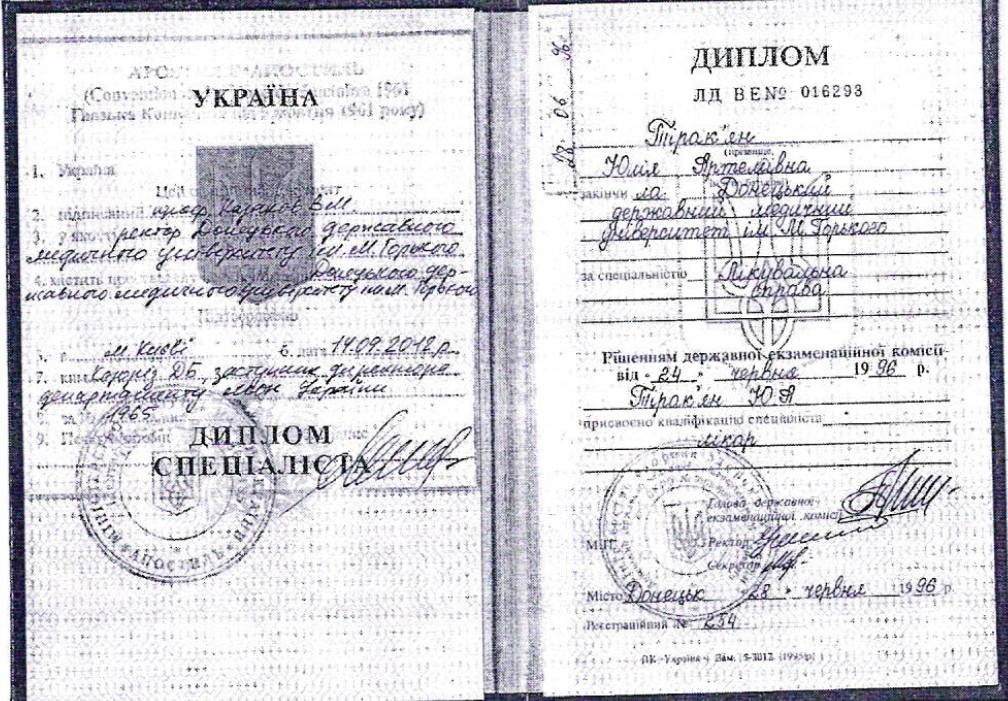 УКРАЇНА
(Convention
1961
1961 року)
1. Україна
Цей
2. підписаний проф. Казаков В.М.
3. у якості ректор Донецького державного
медичного університету ім. М. Горького
4. містить
Донецького дер-
жавного медичного університету ім. М. Горького
Підтверджено
5. в м. Києві 6. дата 14.09.2012 р.
7. ким Короріз Д.Б., заступник директора
департаменту України
8. за № 1965
9.
ДИПЛОМ
СПЕЦІАЛІСТА
АПОСТИЛЬ
28 06 96
ДИПЛОМ
ЛД ВЕ№ 016293
Тірак'ян
(прізвище,
Юлія Артемівна
закінчи ла Донецький
державний медичний
університет ім. М. Горького
за спеціальністю Лікувальна
справа
Рішенням державної екзаменаційної комісії
від „24" червня 1996 р.
Тірак'ян Ю.А
присвоєно кваліфікацію спеціаліста
лікар
Голова державної
екзаменаційної комісії
М.П.
Ректор
Секретар
Місто Донецьк „28" червня 1996 р.
Реєстраційний № 254
ПК „Україна". Зам. 5-3012 (1995р)